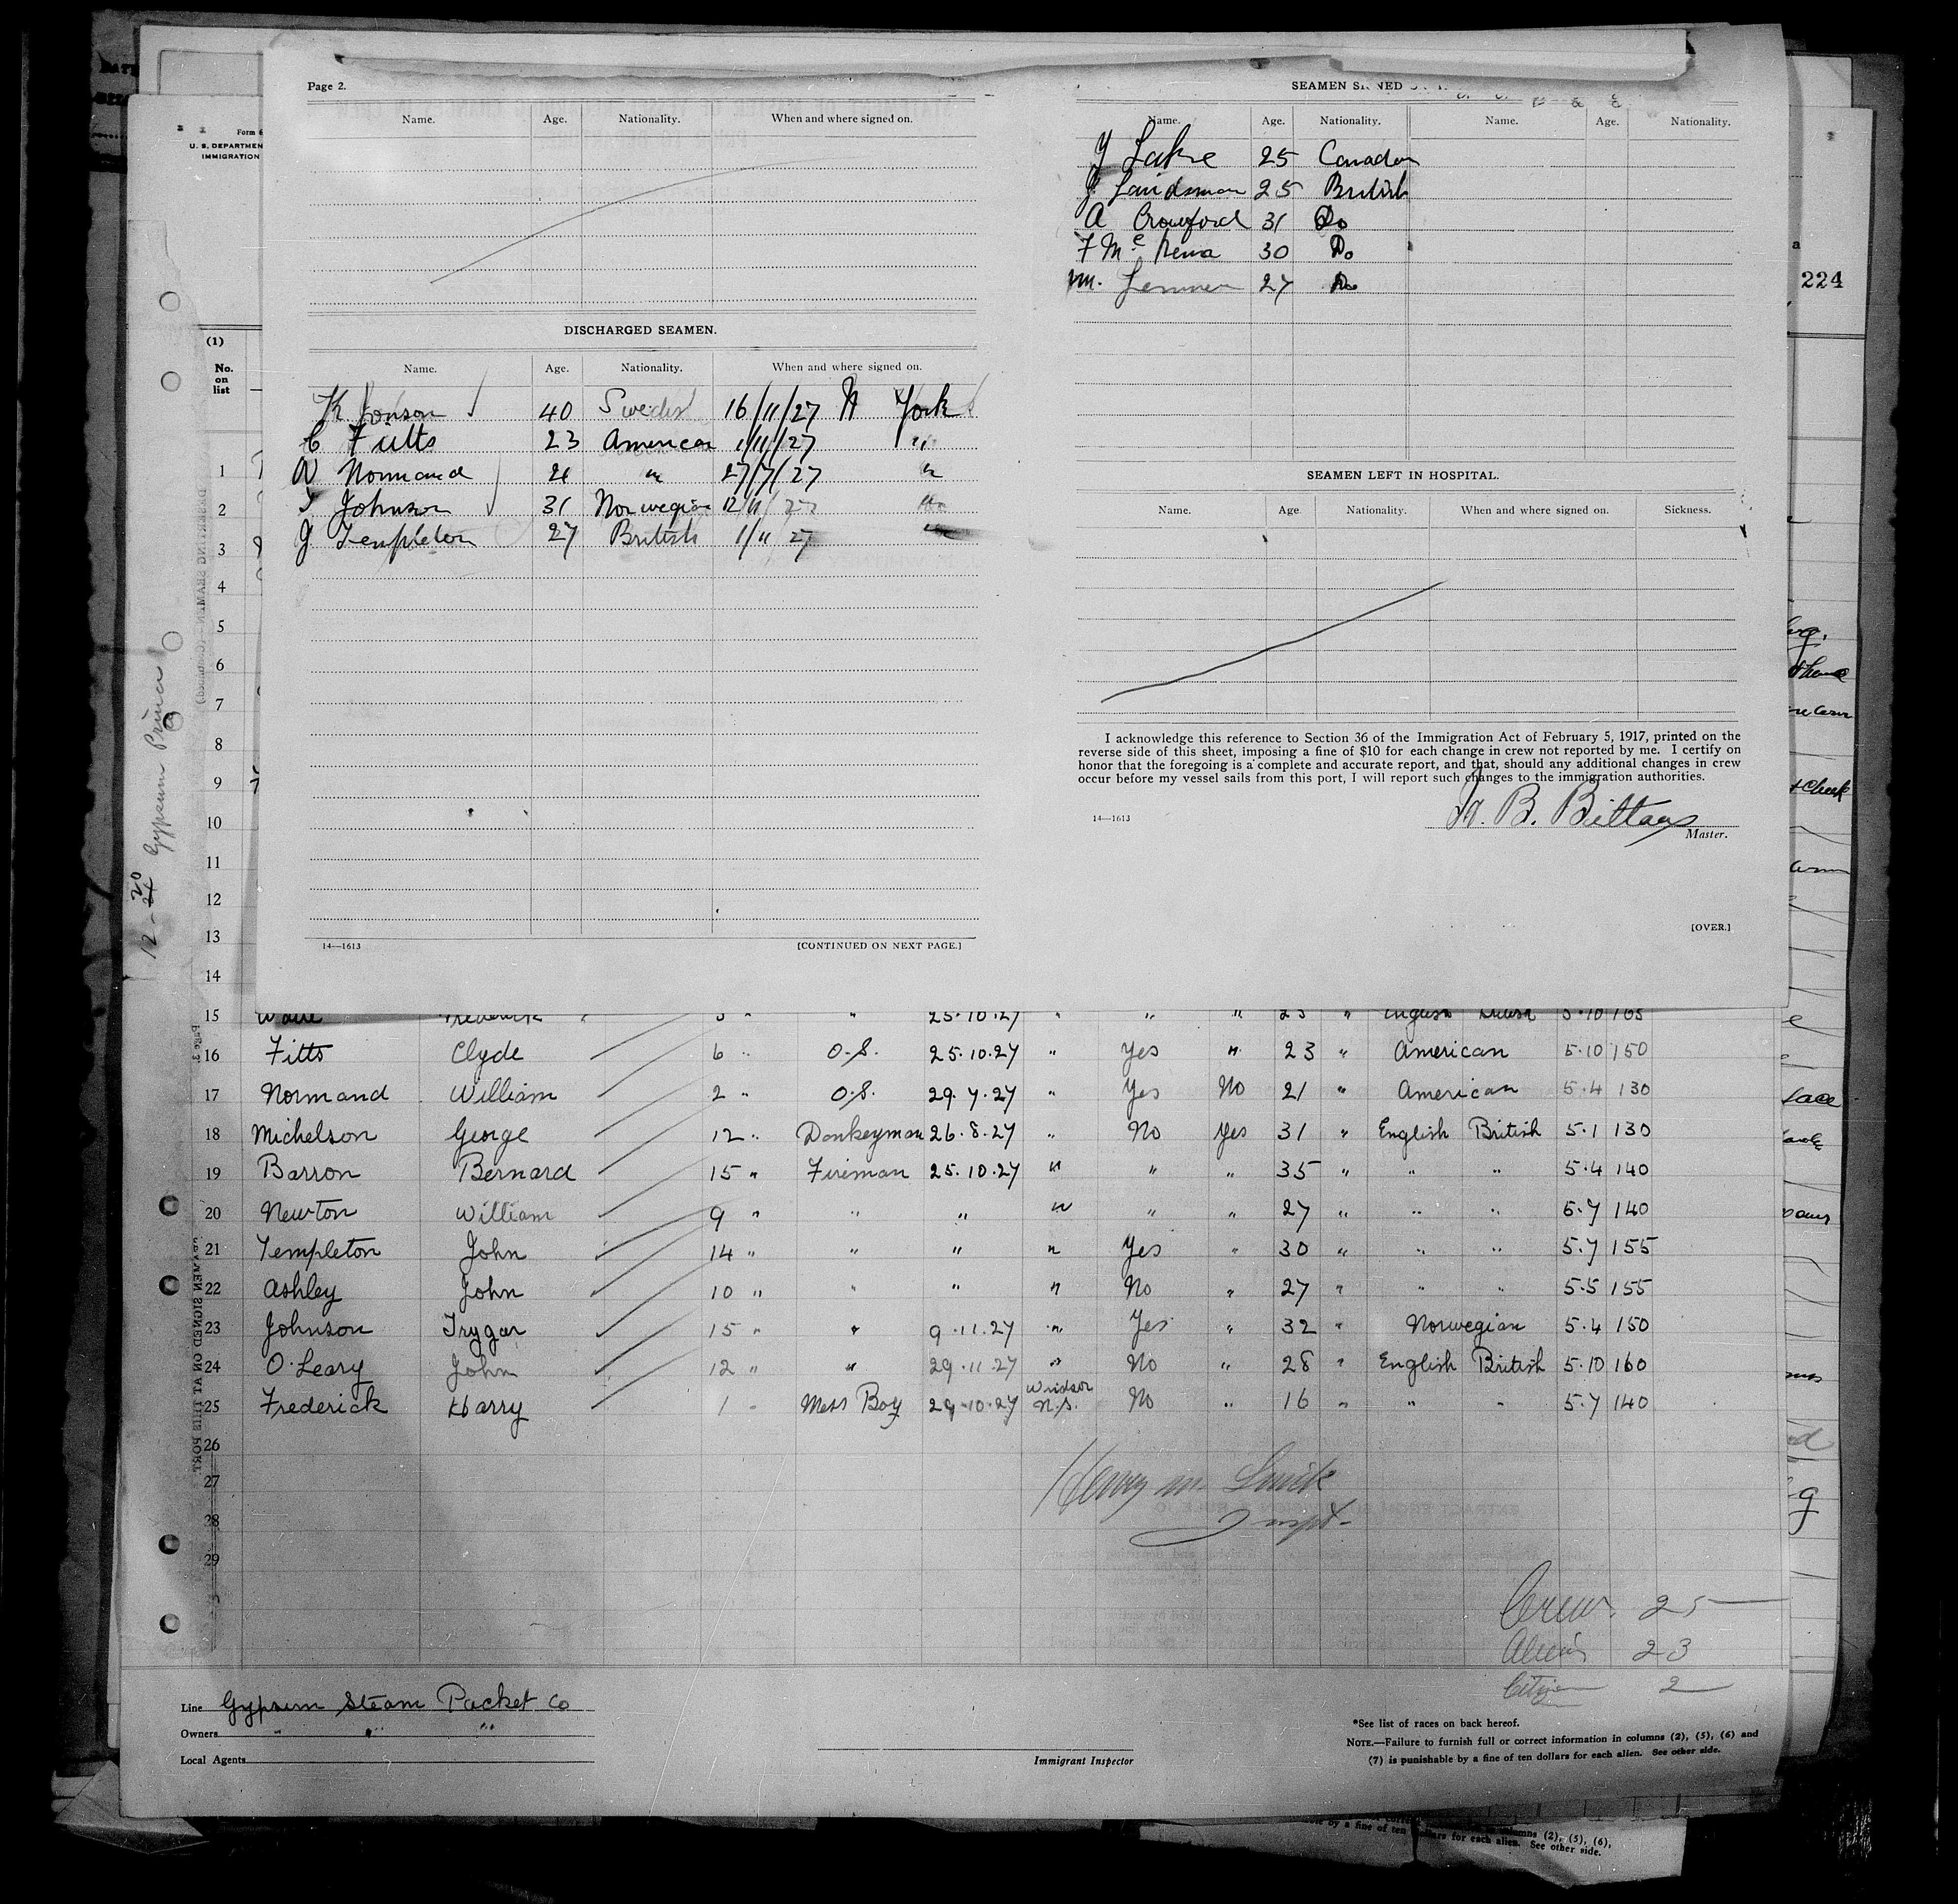 Page 2.
Name. Age. Nationality. When and where signed on.
DISCHARGED SEAMEN.
Name. Age. Nationality. When and where signed on.
K Jonson 40 Swedish 16/11/27 N York
C Fitts 23 American 1/11/27 "
W Normand 21 " 27/7/27 "
T Johnson 31 Norwegian 12/11/27 "
J Templeton 27 British 1/11 27 "
14—1613 [CONTINUED ON NEXT PAGE.]
SEAMEN SIGNED
Name. Age. Nationality. Name. Age. Nationality.
Y Lake 25 Canadian
J Landsman 25 British
A Crawford 31 Do
F Mc 30 Do
Wm. 27 Do
SEAMEN LEFT IN HOSPITAL.
Name. Age. Nationality. When and where signed on. Sickness.
I acknowledge this reference to Section 36 of the Immigration Act of February 5, 1917, printed on the
reverse side of this sheet, imposing a fine of $10 for each change in crew not reported by me. I certify on
honor that the foregoing is a complete and accurate report, and that, should any additional changes in crew
occur before my vessel sails from this port, I will report such changes to the immigration authorities.
B.
14—1613 Master.
[OVER.]
224
Form 6
U. S. DEPARTMEN
IMMIGRATION
(1)
No.
on
list
12-20 Gypsum Prince
1
2
3
4
5
6
7
8
9
10
11
12
13
14
15 25.10.27 " " " 23 " 5.10 165
16 Fitts Clyde 6 " O.S. 25.10.27 " Yes " 23 " American 5.10 150
17 Normand William 2 " O.S. 29.7.27 " Yes No 21 " American 5.4 130
18 Michelson George 12 " Donkeyman 26.8.27 " No Yes 31 " English British 5.1 130
19 Barron Bernard 15 " Fireman 25.10.27 " " " 35 " " " 5.4 140
20 Newton William 9 " " " " " " 27 " " " 5.7 140
21 Templeton John 14 " " " " Yes " 30 " " " 5.7 155
22 Ashley John 10 " " " " No " 27 " " " 5.5 155
23 Johnson Trygar 15 " " 9.11.27 " Yes " 32 " Norwegian 5.4 150
24 O'Leary John 12 " " 29.11.27 " No " 28 " English British 5.10 160
25 Frederick Harry 1 " Mess Boy 29.10.27 Windsor N.S. No " 16 " " " 5.7 140
26
27
28
29
Henry m. Smick
Inspt.
Crew. 25
Aliens 23
Citizen 2
Line Gypsum Steam Packet Co
Owners " " "
Local Agents
Immigrant Inspector
*See list of races on back hereof.
NOTE.—Failure to furnish full or correct information in columns (2), (5), (6) and
(7) is punishable by a fine of ten dollars for each alien. See other side.
columns (2), (5), (6),
by a fine of ten dollars for each alien. See other side.